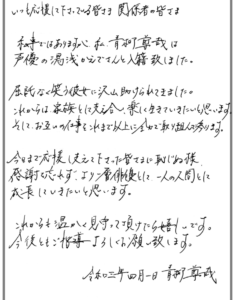 いつも応援して下さっている皆さま 関係者の皆さま
私事ではありますが、私、青
声優の湯浅かえでさんと入籍致しました。
屈託なく笑う彼女に沢山助けられてきました。
これからは家族として支え合い、楽しく生きていきたいと思います。
そしてお互いの仕事をこれまで以上に全力で取り組んで参ります。
今日まで応援し支えて下さった皆さまに
感謝を忘れず、より一層俳優として、一人の人間として
成長していきたいと思います。
これからも温かく見守って頂けたら嬉しいです。
今後ともご指導 よろしくお願い致します。
令和三年四月一日 青